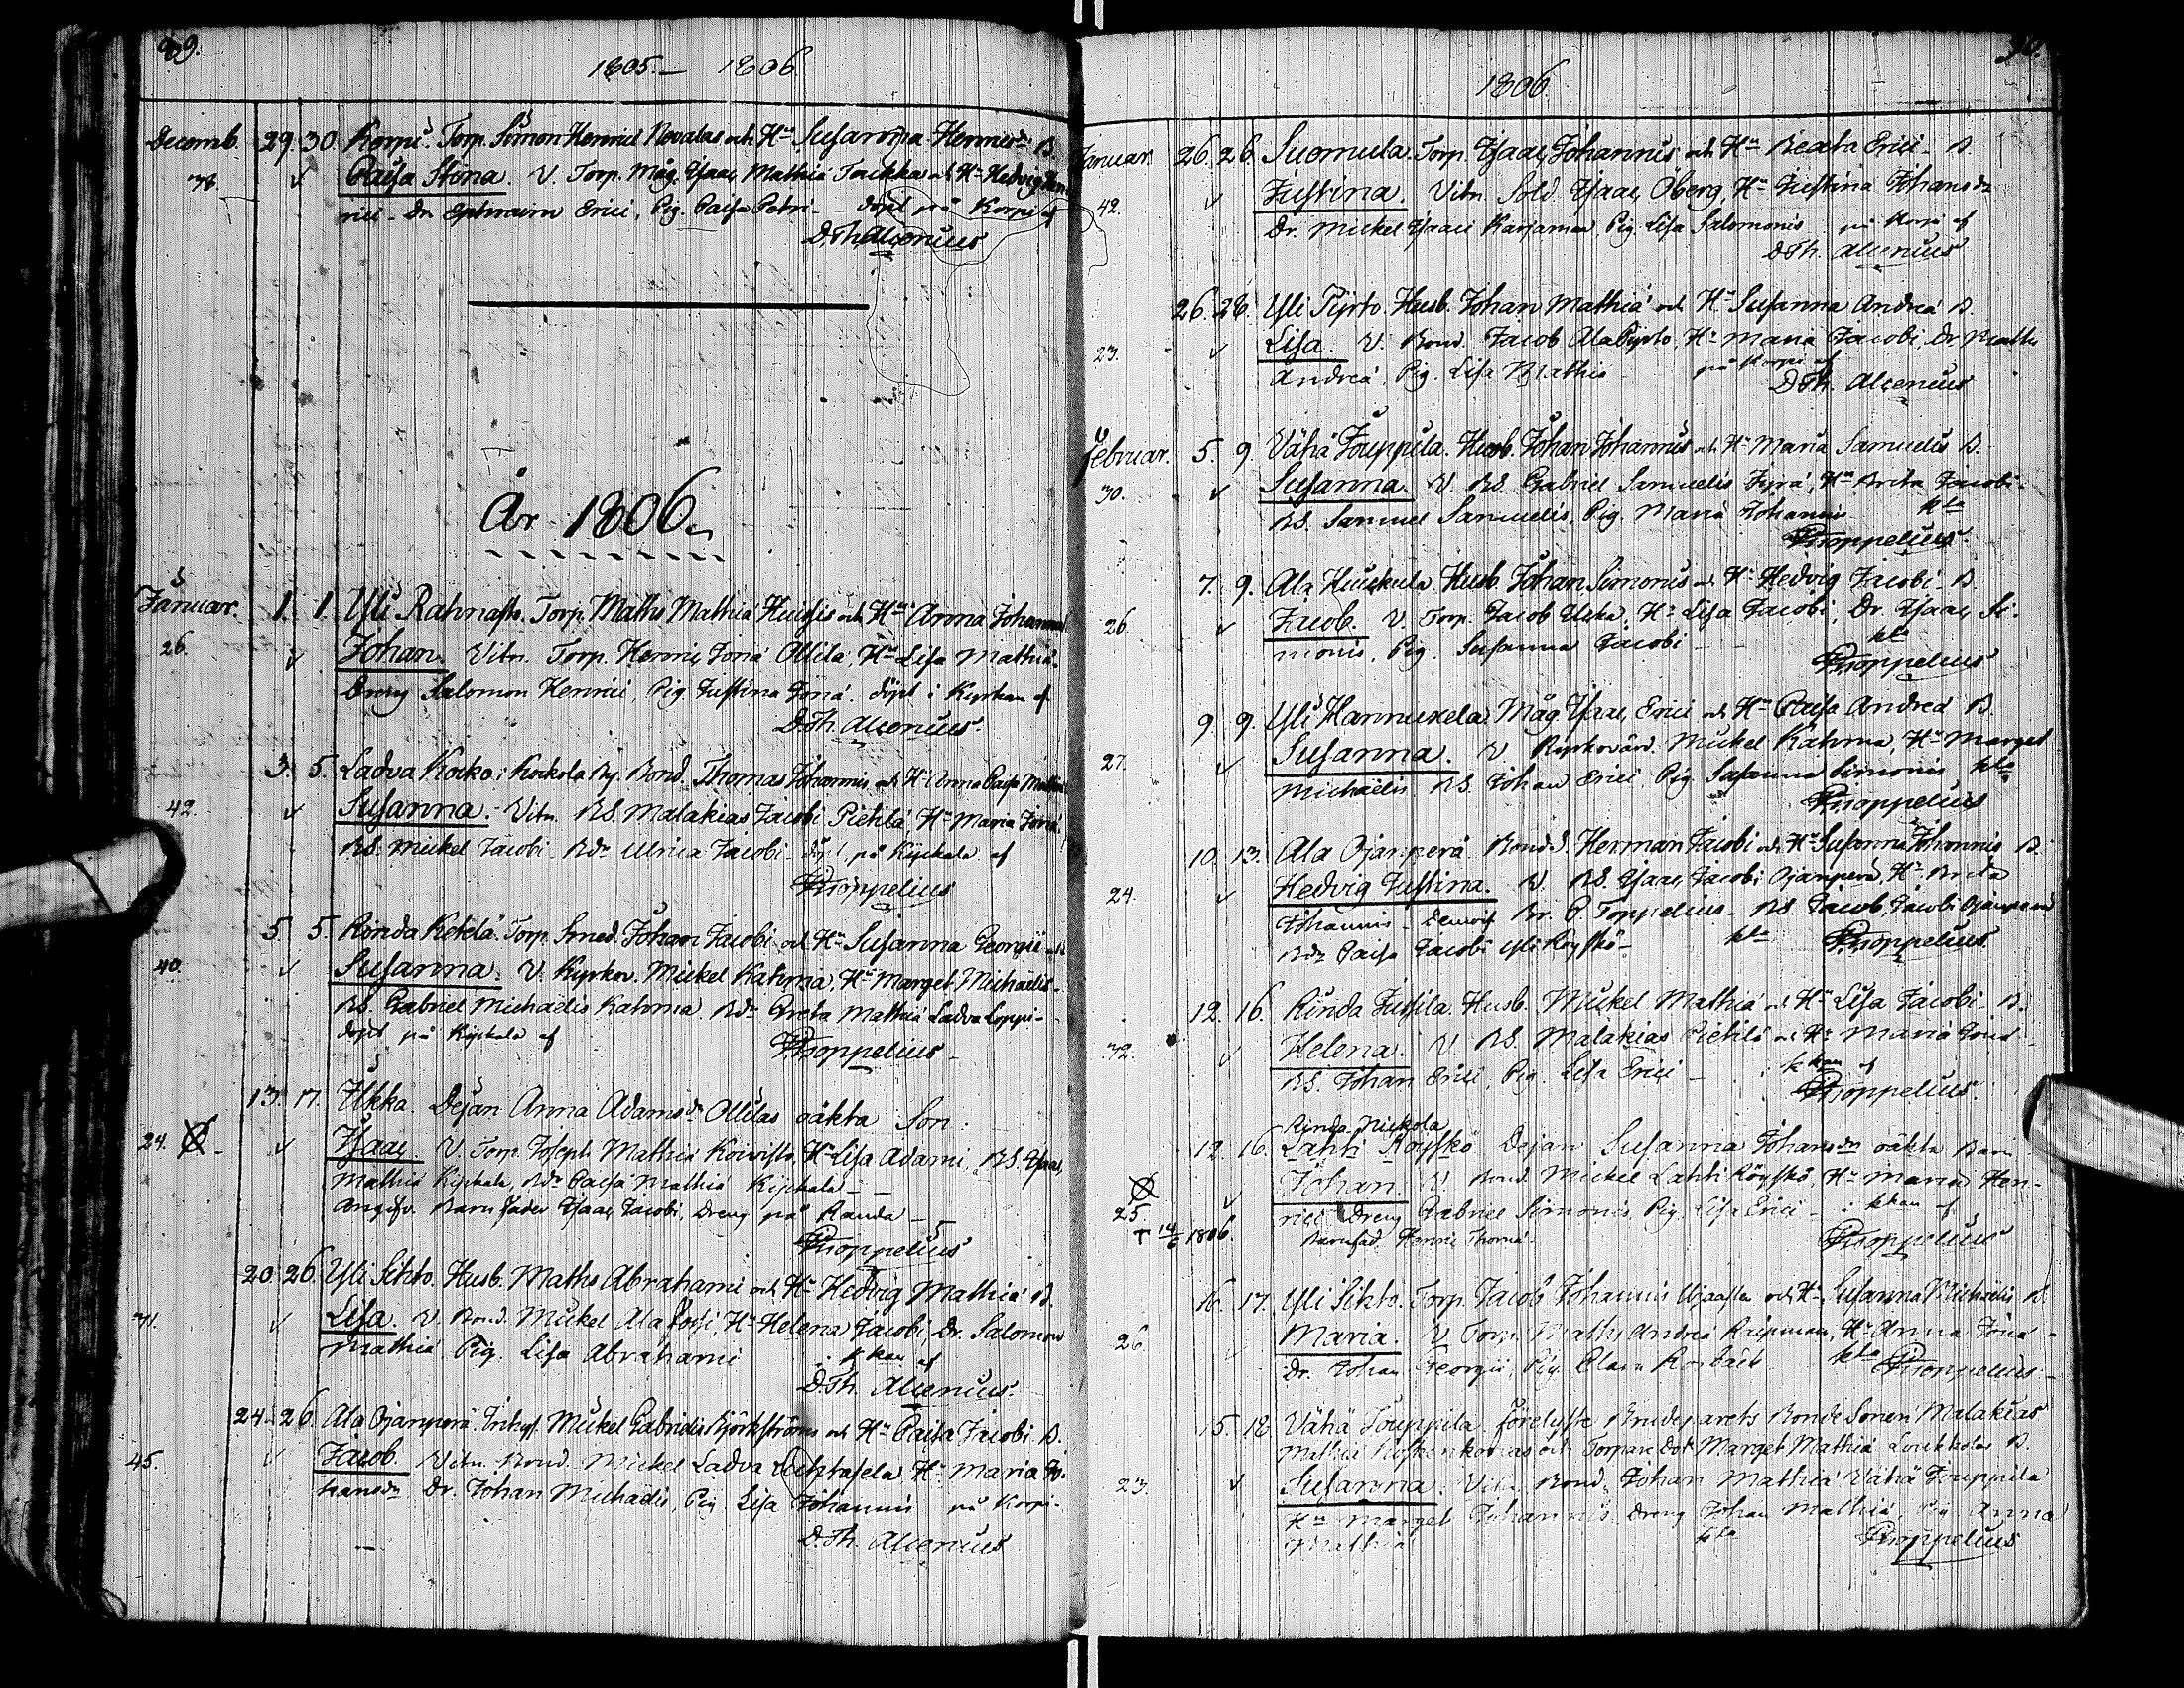 1805.— 1806.
Decemb. 29. 30. Korpi. Torp. Simon Henrici Novalas och Hu Susanna Henricsdr B.
38. Caisa Stina. V. Torp. Måg. Isaac Mathiæ Torikka och Hu Hedvig Hen-
rici - Dr. Ephraim Erici, Pig. Caisa Petri - döpt på Korpi af
D. Th. Alcenius
År 1806.
Januar. 1. 1. Yli Rahnasto. Torp. Maths Mathiæ och Hu Anna Johannis
26. Johan. Vitn. Torp. Henric Jonæ Ollila, Hu Lisa Mathiæ.
Dreng Salomon Henrici, Pig. Justina Jonæ. döpt i Kyrkan af
D. Th. Alcenius.
3. 5. Ladva Kocko i Kockola By. Bond. Thomas Johannis och Hu Anna Caisa Mathiæ
42. Susanna. Vitn. BS. Malakias Jacobi Pietilä, Hu Maria Jonæ.
BS. Mickel Jacobi - Bdr Ulrica Jacobi - döpt på Kyrkala af
P. Toppelius
5. 5. Rinda Ketelä. Torp. Smed. Johan Jacobi och Hu Susanna Georgii - B
40. Susanna. V. Kyrkov. Mickel Kahma, Hu Marget Michaëlis -
BS. Gabriel Michaëlis Kahma. Bdr Greta Mathiæ Ladva Loppi -
döpt på Kyrkala af
P. Toppelius
13. 17. Ukka. Dejan Anna Adamsdr Ollilas oäkta Son:
24. Isaac. V. Torp. Joseph Mathiæ Koivisto, Hu Lisa Adami, BS. Isaac
Mathiæ Kyrkala, Bdr Caisa Mathiæ Kyrkala -
Angifv. Barnfader Isaac Jacobi, Dreng på Randa -
P. Toppelius
20. 26. Yli Sihto. Husb. Maths Abrahami och Hu Hedvig Mathiæ B.
31. Lisa. V. Bond. Mickel Ala, Hu Helena Jacobi, Dr. Salomon
Mathiæ Pig. Lisa Abrahami i kkan af
D. Th. Alcenius.
24. 26. Ala Ojanperä. Mickel Gabrielis Björkströms och Hu Caisa Jacobi B.
45. Jacob. Vitn. Bond. Mickel Ladva Luhtasela Hu Maria Jo-
hansdr Dr. Johan Michaëlis, Pig. Lisa Johannis på Korpi -
D. Th. Alcenius
1806
Januar. 26. 26. Suomula. Torp. Isaac Johannis och Hu Beata Erici - B
42. Justina. Vitn. Sold. Isaac Öberg, Hu Justina Johansdr
Dr. Mickel Isaaci Karjamaa Pig. Lisa Salomonis på Korpi af
D. Th. Alcenius
26. 28. Yli Pyrto. Husb. Johan Mathiæ och Hu Susanna Andreæ B.
23. Lisa. V. Bond. Jacob Ala Pyrto, Hu Maria Jacobi, Dr Maths
Andreæ, Pig. Lisa Mathiæ - på Korpi af
D. Th. Alcenius
Februar. 5. 9. Vähä Jouppila. Husb. Johan Johannis och Hu Maria Samuelis B.
30. Susanna. V. BS. Gabriel Samuelis Jyrä, Hu Brita Jacobi -
BS. Samuel Samuelis, Pig. Maria Johannis kla
P. Toppelius
7. 9. Ala Huckula. Husb. Johan Simonis och Hu Hedvig Jacobi - B
26. Jacob. V. Torp. Jacob Ukka, Hu Lisa Jacobi, Dr. Isaac Si-
monis, Pig. Susanna Jacobi - kla
P. Toppelius
9. 9. Yli Hannuxela. Måg. Isaac Erici och Hu Caisa Andreæ B.
27. Susanna. V Kyrkovärd. Mickel Kahma, Hu Marget
Michaëlis BS. Johan Erici, Pig. Susanna Simonis kla
P. Toppelius
10. 13. Ala Ojanperä Bond. Herman Jacobi och Hu Susanna Johannis B.
24. Hedvig Justina. V. BS. Isaac Jacobi Ojanperä, Hu Brita
Johannis - Br. G. Toppelius - BS. Jacob Jacobi Ojanperä
Bdr Caisa Jacobi Yli Röyskö - kla P. Toppelius.
12. 16. Rinda Jussila. Husb. Mickel Mathiæ och Hu Lisa Jacobi B.
32. Helena. V. BS. Malakias Pietilä och Hu Maria Jonæ
BS. Johan Erici, Pig. Lisa Erici - i kkan af
P. Toppelius.
Rinda Nickola
12. 16. Lahti Röyskö Dejan Susanna Johansdr oäkta Barn
Johan V. Bond. Mickel Lahti Röyskö, Hu Maria Hen-
25 rici Dreng Gabriel Simonis, Pig. Lisa Erici - i kkan af
† 14/6 1806. Barnfad. Henric Thomæ P. Toppelius
16. 17. Yli Sihto. Torp. Jacob Johannis och Hu Susanna Michaëlis B.
26. Maria. V Torp. Maths Andreæ, Hu Anna Jonæ -
Dr. Johan Georgii, Pig. kla P. Toppelius -
15. 18. Vähä Jouppila förelyste Brudeparets Bonde Sonen Malakias
Mathiæ och Torpare Dot. Marget Mathiæ B.
23. Susanna. Vitn. Bond. Johan Mathiæ Vähä Jouppila
Hu Marget Johannis Dreng Johan Mathiæ, Pig. Anna
Mathiæ kla P. Toppelius